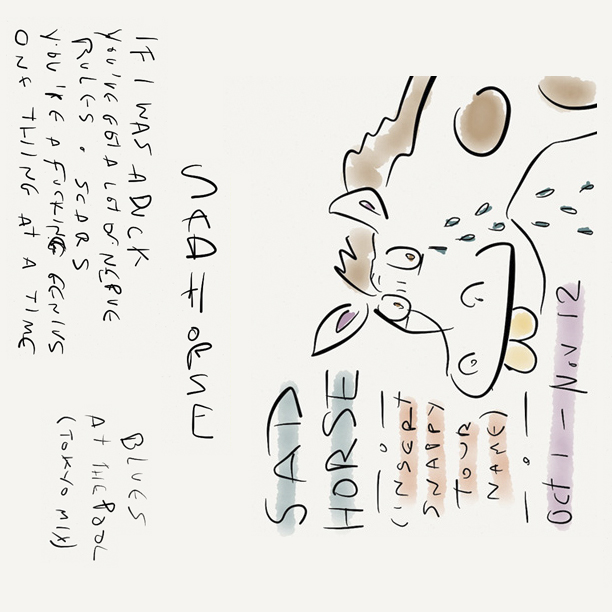 SAD
HORSE
(INSERT
SNAPPY
TOUR
NAME)
OCT 1 – NOV 12
IF I WAS A DUCK
YOU'VE GOT A LOT OF NERVE
RULES & SCARS
YOU'RE A FUCKING GENIUS
ONE THING AT A TIME
BLUES
AT THE POOL
(TOKYO MIX)